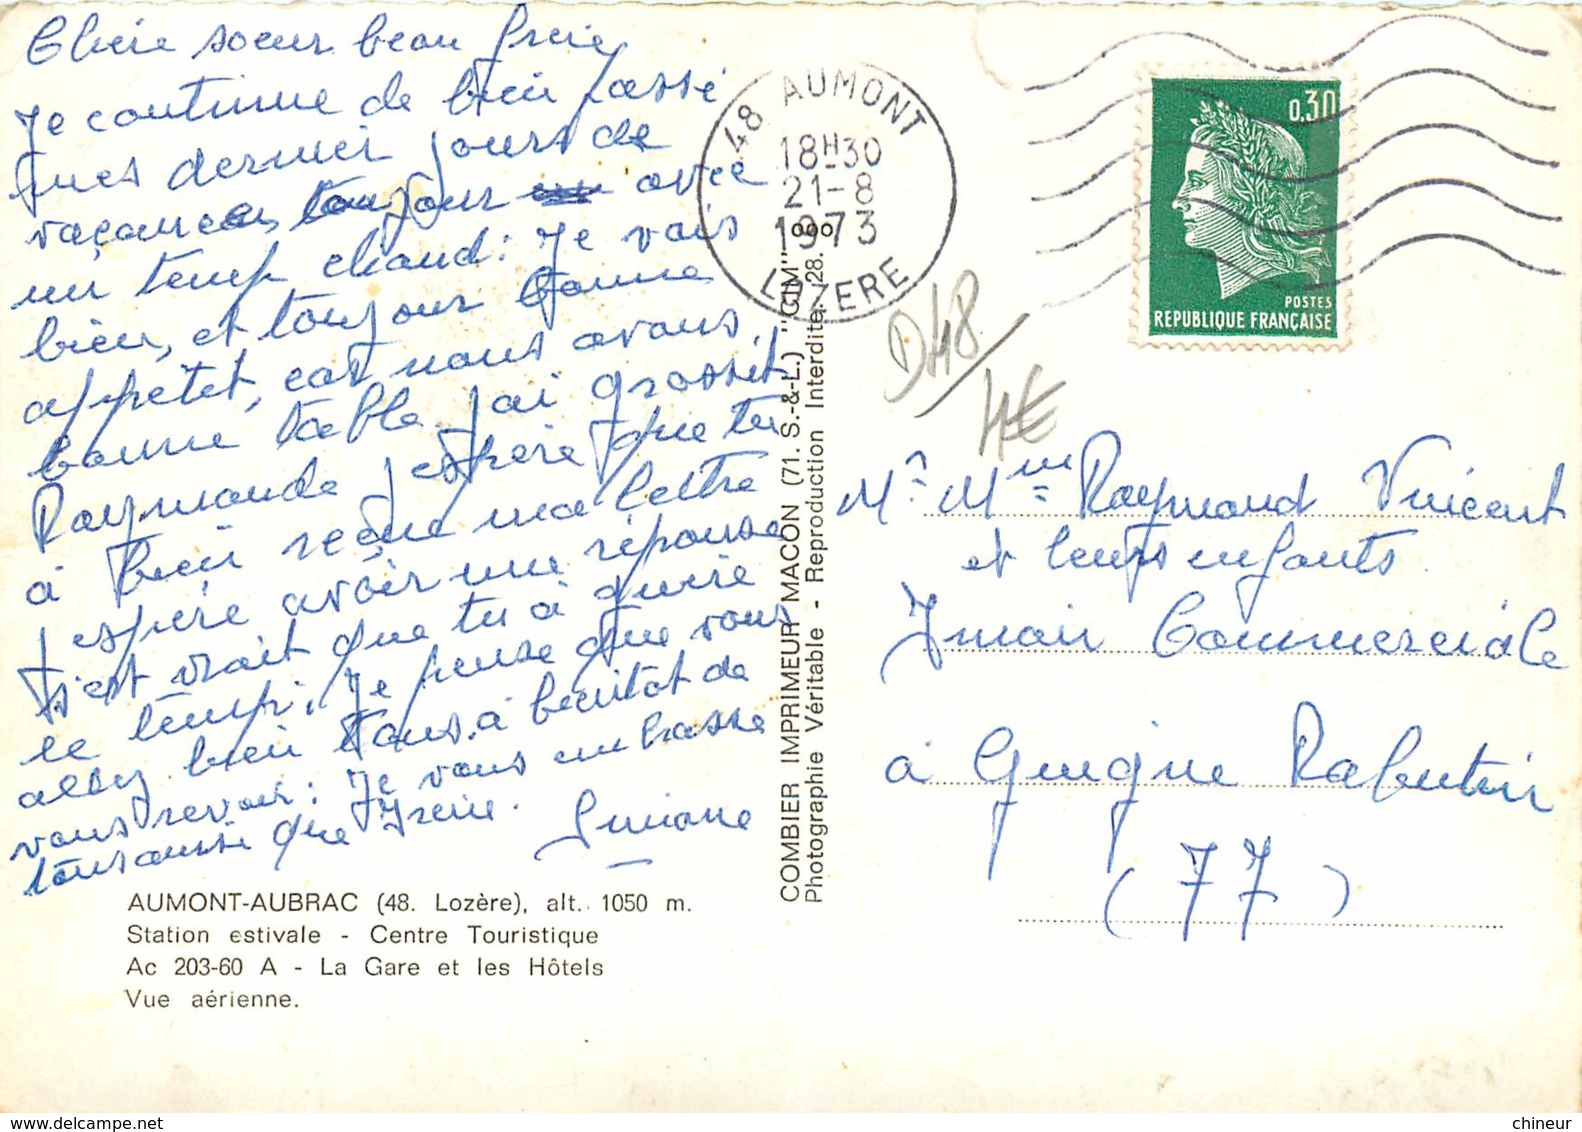 Chere soeur beau frere
Je continue de bien passé
mes dernier jours de
vacances, toujour avec
un temp chaud: Je vais
bien, et toujour bonne
appetet, car nous avons
bonne table. J'ai grossit
Raymonde j'espère que tu
à bien reçue ma lettre
J'espère avoir une réponse
s'est vrait que tu à guère
le temp; Je pense que vous
allez bien tous, à bientot de
vous revoir: Je vous embrasse
tous aussi que Irene.
Simone
AUMONT-AUBRAC (48. Lozère), alt. 1050 m.
Station estivale - Centre Touristique
Ac 203-60 A - La Gare et les Hôtels
Vue aérienne.
COMBIER IMPRIMEUR MACON (71. S.-&-L.) "CIM"
Photographie Véritable - Reproduction Interdite. (28.
48 AUMONT
18H30
21-8
1973
LOZERE
0,30
POSTES
REPUBLIQUE FRANÇAISE
D48/
4€
Mr Mme Raymond Vincent
et leurs enfants
Commerciale
à Guigne Rabutin
(77)
chineur